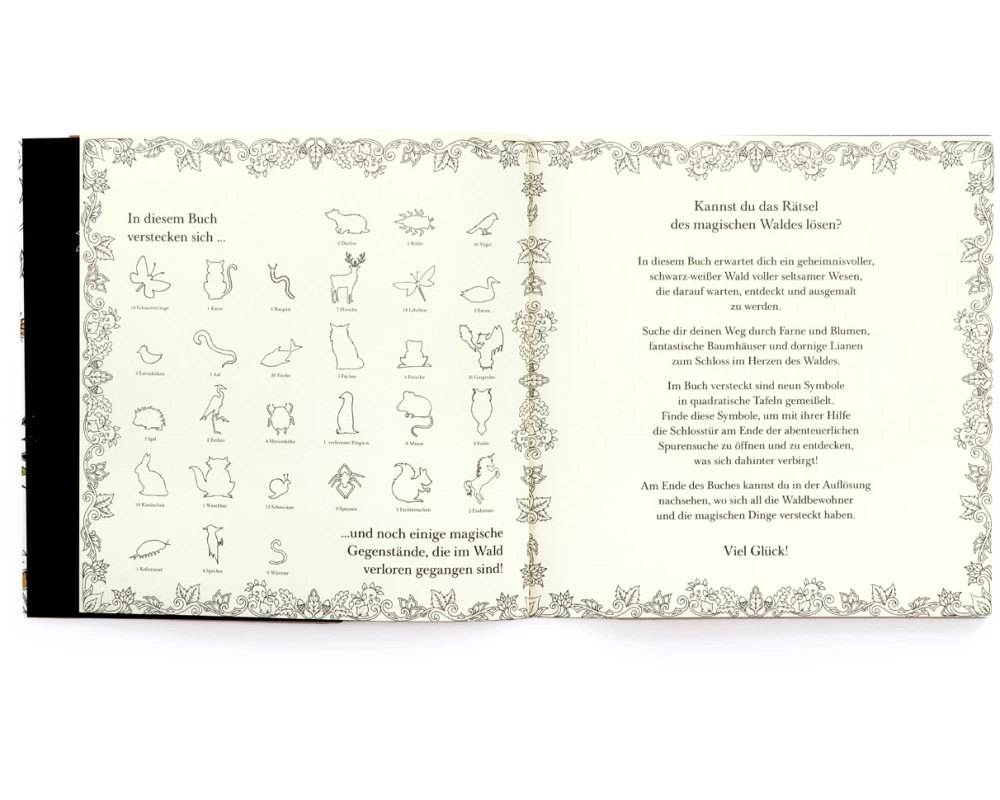 In diesem Buch
verstecken sich ...
2 Dachse
3 Käfer
60 Vögel
1 Katze
5 Raupen
7 Hirsche
18 Libellen
2 Enten
3 Entenküken
1 Aal
36 Fische
3 Füchse
4 Frösche
16 Gargoyles
3 Igel
2 Reiher
4 Marienkäfer
1 verlorener Pinguin
9 Mäuse
8 Eulen
1 Waschbär
9 Spinnen
5 Eichhörnchen
2 Einhörner
4 Spechte
6 Würmer
...und noch einige magische
Gegenstände, die im Wald
verloren gegangen sind!
Kannst du das Rätsel
des magischen Waldes lösen?
In diesem Buch erwartet dich ein geheimnisvoller,
schwarz-weißer Wald voller seltsamer Wesen,
die darauf warten, entdeckt und ausgemalt
zu werden.
Suche dir deinen Weg durch Farne und Blumen,
fantastische Baumhäuser und dornige Lianen
zum Schloss im Herzen des Waldes.
Im Buch versteckt sind neun Symbole
in quadratische Tafeln gemeißelt.
Finde diese Symbole, um mit ihrer Hilfe
die Schlosstür am Ende der abenteuerlichen
Spurensuche zu öffnen und zu entdecken,
was sich dahinter verbirgt!
Am Ende des Buches kannst du in der Auflösung
nachsehen, wo sich all die Waldbewohner
und die magischen Dinge versteckt haben.
Viel Glück!